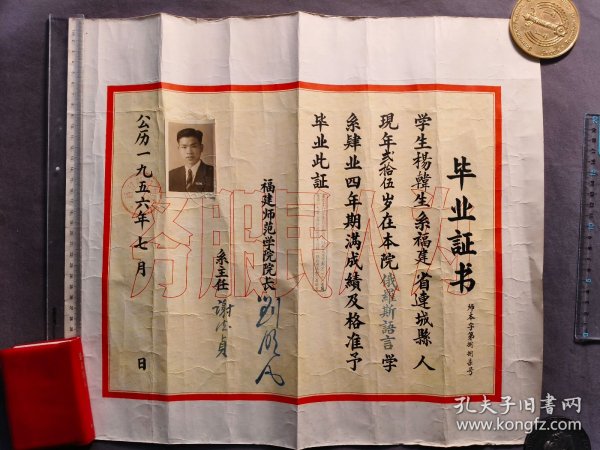 毕业证书
师本字第捌捌壵号
学生楊韓生系福建省連城縣人
現年贰拾伍岁在本院俄羅斯語言学
系肄业四年期滿成績及格准予
毕业此証
福建师范学院院长
系主任
公历一九五六年七月 日
为人民服务
孔夫子旧书网
www.kongfz.com